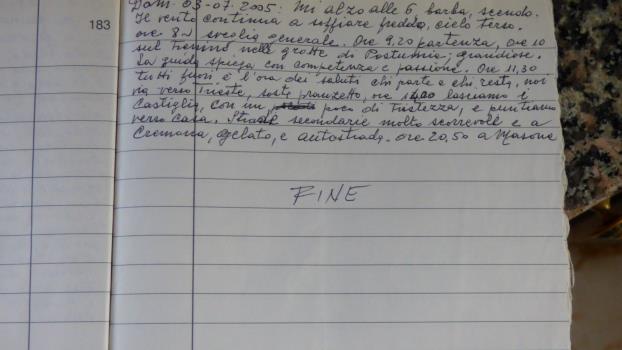 Dom. 03-07-2005: Mi alzo alle 6, barba, scendo.
Il vento continua a soffiare freddo, cielo terso.
183
ore 8 sveglia generale. Ore 9,20 partenza, ore 10
sul trenino nelle grotte di Postumia, grandiose.
la guida spiega con competenza e passione. Ore 11,30
tutti fuori è l'ora dei saluti chi parte e chi resta, noi
via verso Trieste, sosta pranzetto, ore lasciamo i
Castiglia, con un poco di tristezza, e puntiamo
verso casa. Strade secondarie molto scorrevoli e a
Cremona, gelato, e autostrada. ore 20,50 a Masone
FINE